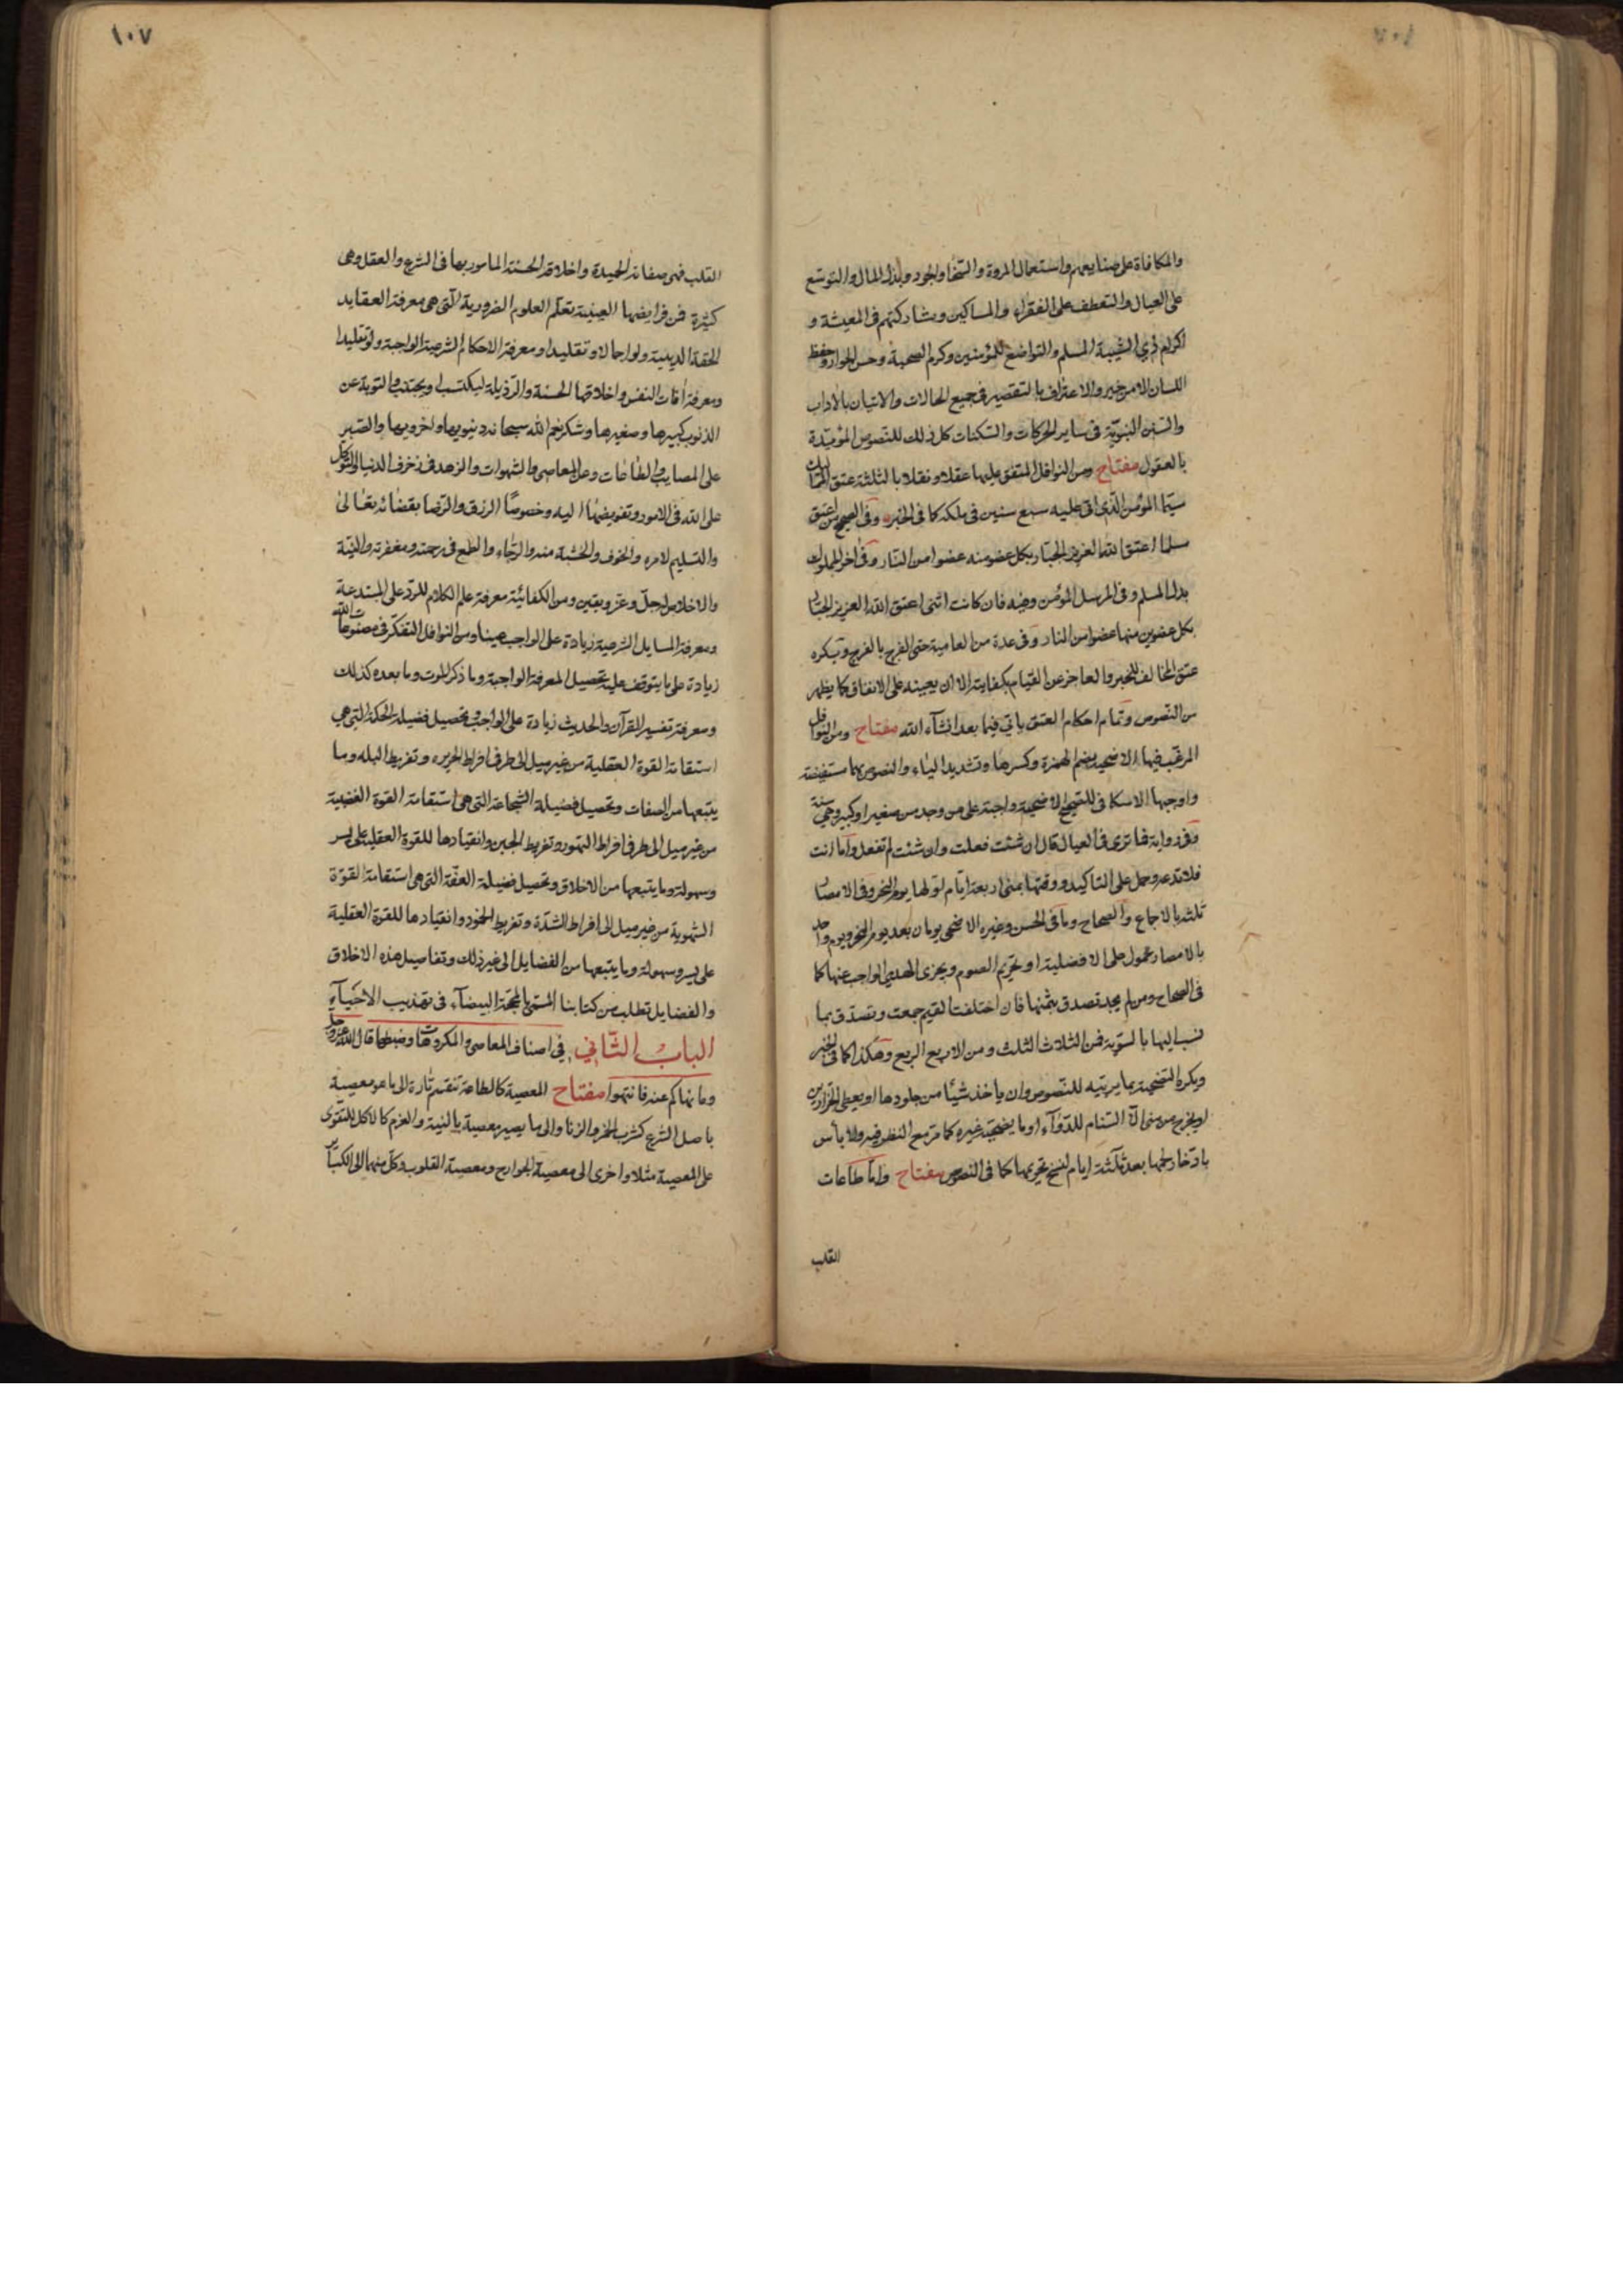 والمكافاة على صنايعهم واستعمال المروة والسخا والجود وبذل المال والتوسّع
على العيال والتعطف على الفقراء والمساكين ومشاركتهم فى المعيشة و
اكرام ذى الشيبة المسلم والتواضع للمؤمنين وكرم الصحبة وحسن الجوار وحفظ
اللسان الا من خير والاعتراف بالتقصير فى جميع الحالات والاتيان بالاداب
والسنن النبويّة فى ساير الحركات والسّكنات كل ذلك للنّصوص المؤيّدة
بالعقول مفتاح ومن النوافل المتفق عليها عقلا ونقلا بالثلثة عتق المماليك
سيّما المؤمن الّذى اتى عليه سبع سنين فى ملكه كما فى الخبر وفى الصحيح من اعتق
مسلما اعتق الله العزيز الجبّار بكل عضو منه عضوا من النار وفى اخر المملوك
بدل المسلم وفى المرسل المؤمن وفيه فان كانت انثى اعتق الله العزيز الجبّار
بكل عضوين منها عضوا من النار وفى عدة من العامية حتى الفرج بالفرج ويكره
عتق المخالف للخبر والعاجز عن القيام بكفايته الا ان يعينه على الانفاق كما يظهر
من النّصوص وتمام احكام العتق ياتى فيما بعد انشآء الله مفتاح ومن النوافل
المرغّب فيها الاضحية بضم الهمزة وكسرها وتشديد الياء والنصوص بها مستفيضة
واوجبها الاسكافى للصحيح الاضحية واجبة على من وجد من صغير او كبير وهى سنة
وفى رواية فما ترى فى العيال قال ان شئت فعلت وان شئت لم تفعل واما انت
فلا تدعه وحمل على التاكيد ووقتها بمنى اربعة ايّام اولها يوم النحر وفى الامصار
ثلثة بالاجماع والصحاح وما فى الحسن وغيره الاضحى يومان بعد يوم النحر ويوم واحد
بالامصار محمول على الافضلية او تحريم الصوم ويجزى الهدى الواجب عنها كما
فى الصحاح ومن لم يجد تصدق بثمنها فان اختلفت القيم جمعت وتصدّق بما
نسب اليها بالسّوية فمن الثلاث الثلث ومن الاربع الربع وهكذا كما فى الخبر
ويكره التضحية بما يربّيه للنّصوص وان ياخذ شيئًا من جلودها او يعطى الجزارين
او يخرج عن منى الّا السّنام للدّوآء او ما يضحيّه غيره كما مرّ مع النظر فيه ولا بأس
بادّخار لحمها بعد ثلثة ايام لنسخ تحريمها كما فى النصوص مفتاح وامّا طاعات
القلب
١٠٧
القلب فهى صفاته الحميدة واخلاقه الحسنة المامور بها فى الشرع والعقل وهى
كثيرة فمن فرايضها العينية تعلّم العلوم الضرورية الّتى هى معرفة العقايد
الحقة الدينية ولو اجمالا وتقليدا ومعرفة الاحكام الشرعية الواجبة ولو تقليدا
ومعرفة افات النفس واخلاقها الحسنة والرّذيلة ليكتسب او يجتنب والتوبة عن
الذنوب كبيرها وصغيرها وشكر نعم الله سبحانه دنيويها واخرويها والصّبر
على المصايب والطاعات وعن المعاصى والشهوات والزهد فى زخرف الدنيا والتوكل
على الله فى الامور وتفويضها اليه وخصوصًا الرزق والرّضا بقضائه تعالى
والتسليم لامره والخوف والخشية منه والرّجاء والطمع فى رحمته ومغفرته والنيّة
والاخلاص له جلّ وعزّ ويقين ومن الكفائيّة معرفة علم الكلام للردّ على المبتدعة
ومعرفة المسايل الشرعية زيادة على الواجب عينا ومن النوافل التفكّر فى مصنوعات الله
زيادة على ما يتوقف عليه تحصيل المعرفة الواجبة وما ذكر الموت وما بعده كذلك
ومعرفة تفسير القرآن والحديث زيادة على الواجب وتحصيل فضيلة الحكمة التى هى
استقامة القوة العقلية من غير ميل الى طرفى افراط الجربزه وتفريط البله وما
يتبعها من الصفات وتحصيل فضيلة الشجاعة التى هى استقامة القوة الغضبية
من غير ميل الى طرفى افراط التهور وتفريط الجبن وانقيادها للقوة العقلية على يسر
وسهولة وما يتبعها من الاخلاق وتحصيل فضيلة العفّة التى هى استقامة القوّة
الشهوية من غير ميل الى افراط الشدّة وتفريط الخمود وانقيادها للقوة العقلية
على يسر وسهولة وما يتبعها من الفضايل الى غير ذلك وتفاصيل هذه الاخلاق
والفضايل تطلب من كتابنا المسمّى بالمحجّة البيضآء فى تهذيب الاحيآء
الباب الثّانى فى اصناف المعاصى والمكروهات وضبطها قال الله عز وجل
وما نهاكم عنه فانتهوا مفتاح المعصية كالطاعة تنقسم تارة الى ما هو معصية
باصل الشرع كشرب الخمر والزنا والى ما يصير معصية بالنية والعزم كالاكل للتقوى
على المعصية مثلا واخرى الى معصية الجوارح ومعصية القلوب وكلّ منهما الى الكباير